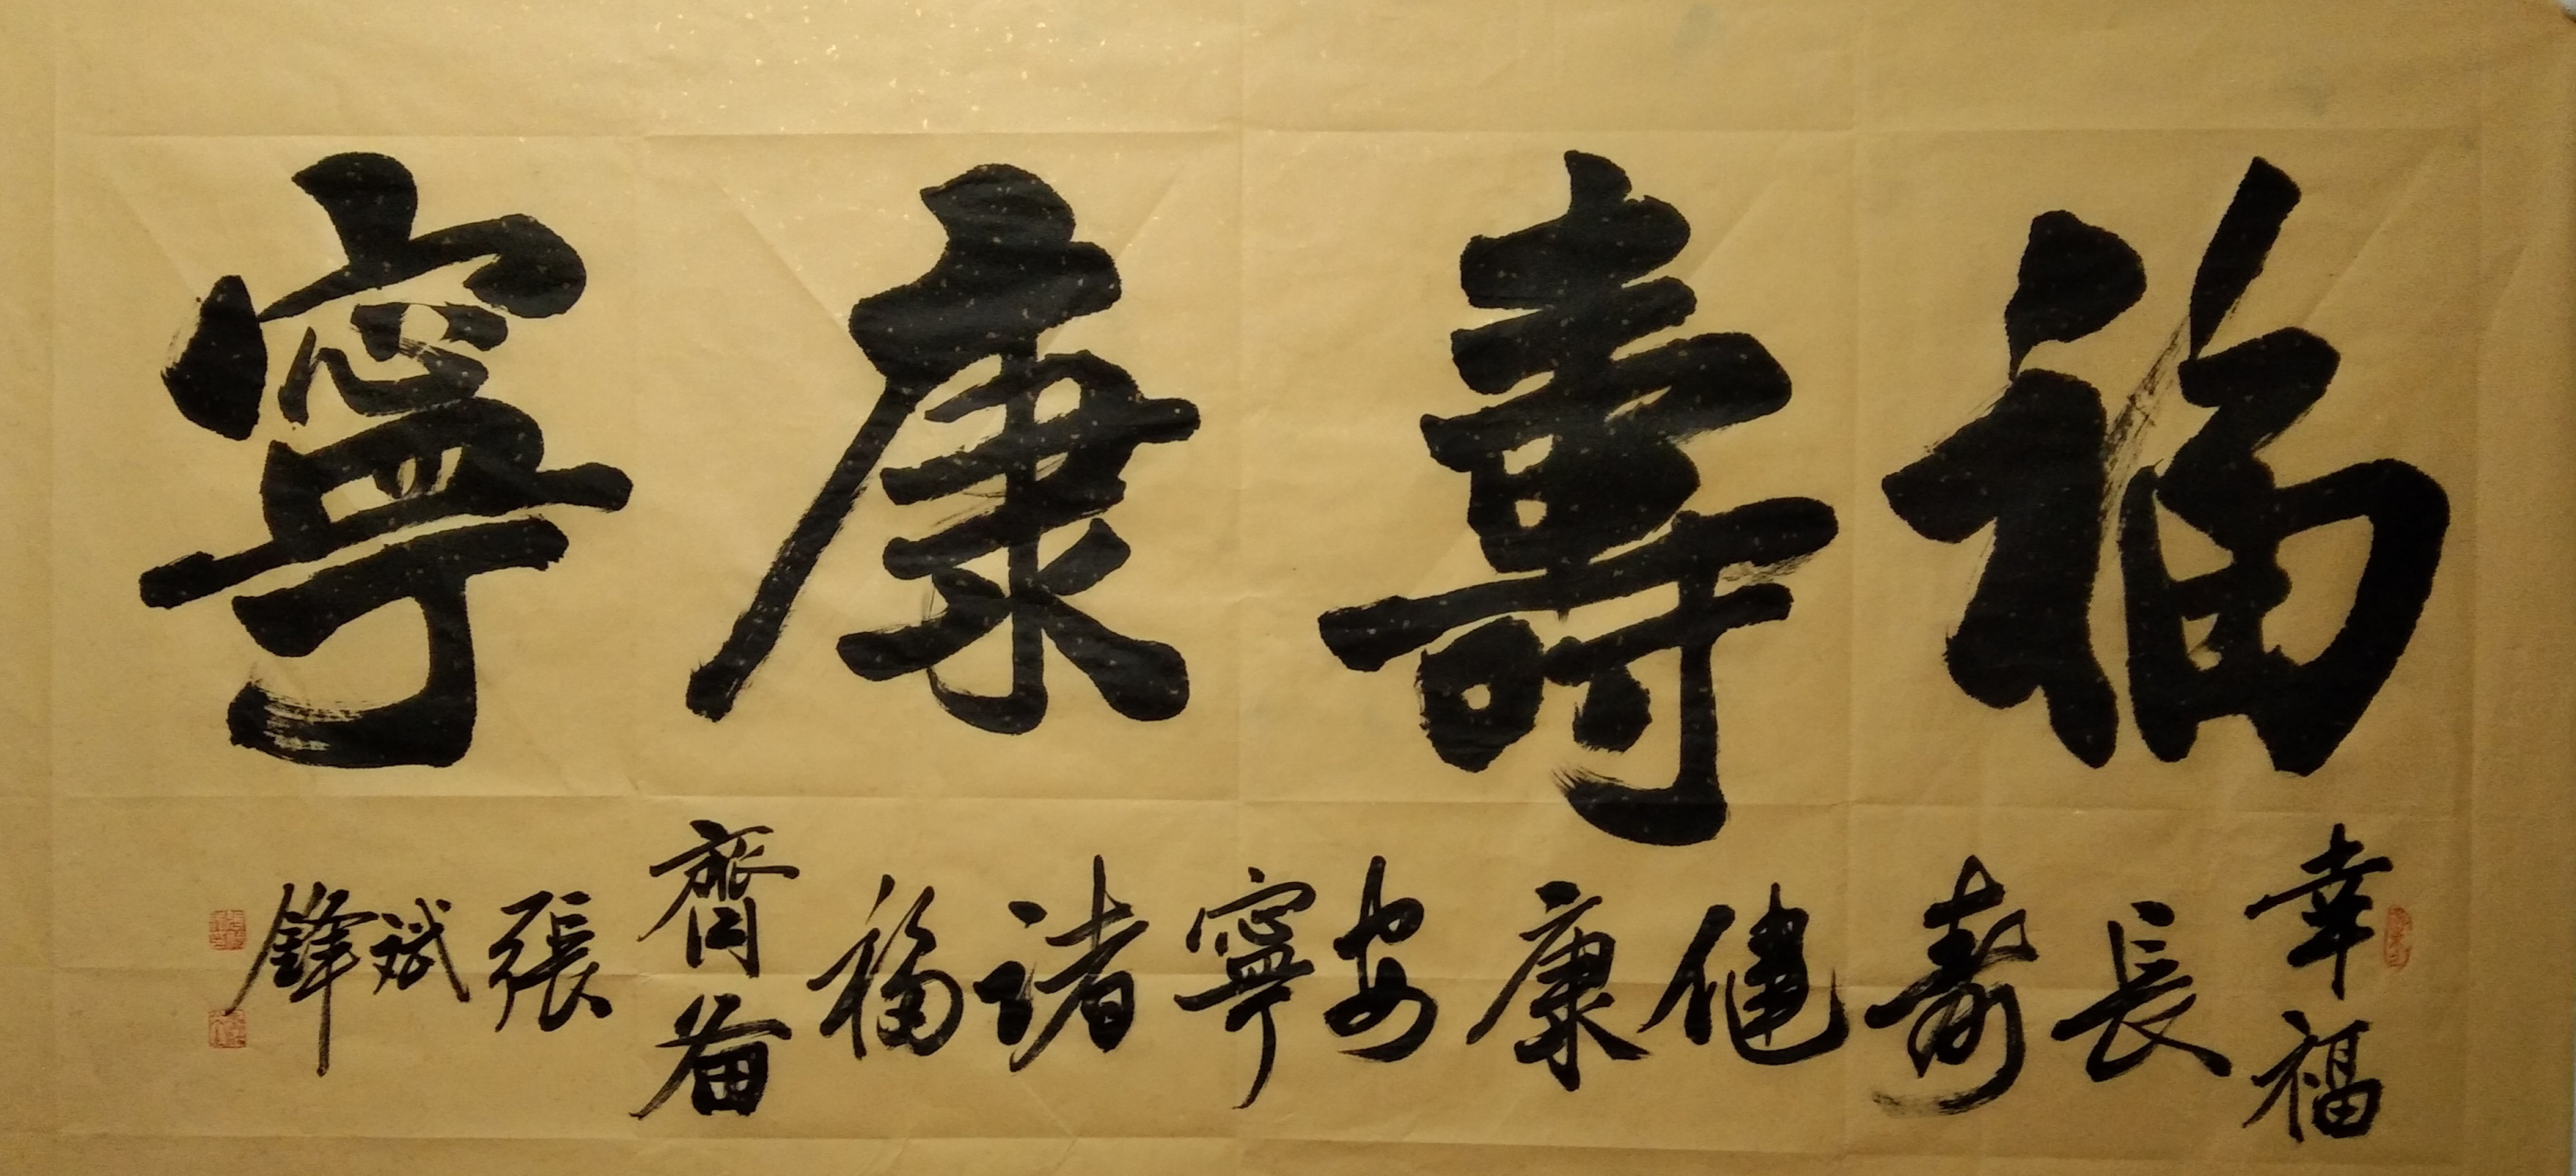 福壽康寧
幸福長壽健康安寧諸福齊備張斌鋒